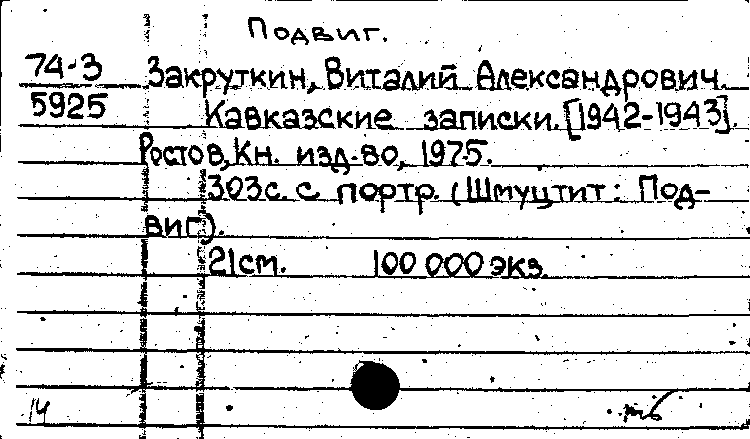 Подвиг.
74-3 Закруткин, Виталий Александрович.
5925 Кавказские записки. [1942-1943].
Ростов, Кн. изд-во, 1975.
303с. с портр. (Шмуцтит: Под-
виг).
21см. 100 000 экз.
14